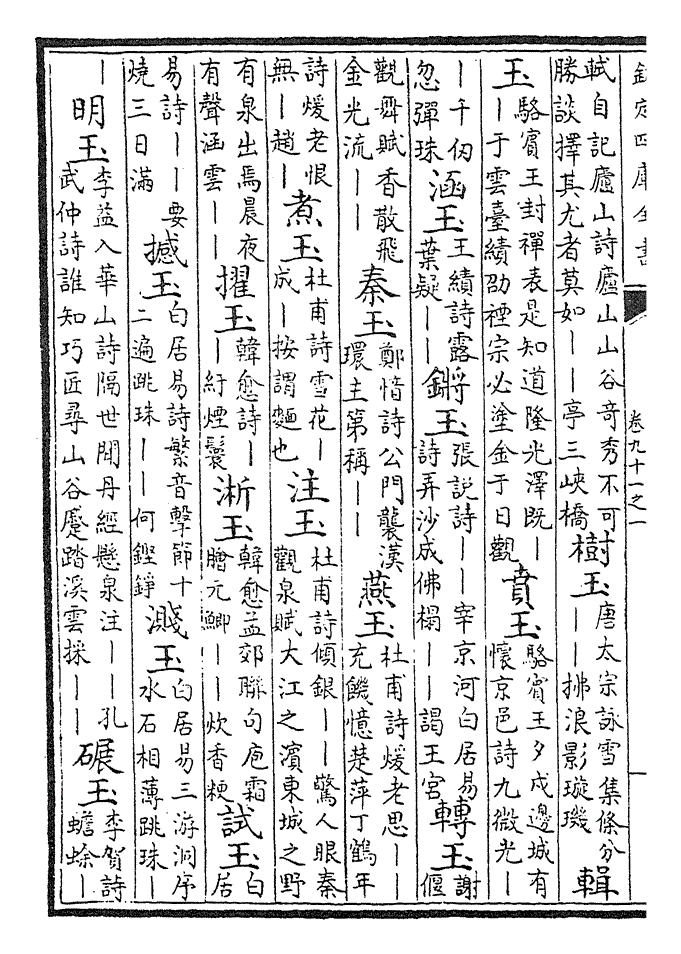 欽定四庫全書
卷九十一之一
軾自記廬山詩廬山山谷奇秀不可
勝談擇其尤者莫如丨丨亭三峽橋
樹玉
唐太宗詠雪集條分
丨丨拂浪影璇璣
輯
玉
駱賓王封禪表是知道隆光澤既丨
丨于雲臺績劭禋宗必塗金于日觀
賁玉
駱賓王夕戍邊城有
懷京邑詩九微光丨
丨千仞
忽彈珠
涵玉
王績詩露
葉疑丨丨
鏘玉
張說詩丨丨宰京河白居易
詩弄沙成佛榻丨丨謁王宮
轉玉
謝
偃
觀舞賦香散飛
金光流丨丨
秦玉
鄭愔詩公門襲漢
環主第稱丨丨
燕玉
杜甫詩煖老思丨丨
充饑憶楚萍丁鶴年
詩煖老恨
無丨趙丨
煮玉
杜甫詩雪花丨
成丨按謂麵也
注玉
杜甫詩傾銀丨丨驚人眼秦
觀泉賦大江之濱東城之野
有泉出焉晨夜
有聲涵雲丨丨
擢玉
韓愈詩丨
丨紆煙鬟
淅玉
韓愈孟郊聯句庖霜
膾元鯽丨丨炊香粳
試玉
白
居
易詩丨丨要
燒三日滿
撼玉
白居易詩繁音擊節十
二遍跳珠丨丨何鏗錚
濺玉
白居易三游洞序
水石相薄跳珠丨
丨
明玉
李益入華山詩隔世聞丹經懸泉注丨丨孔
武仲詩誰知巧匠尋山谷蹙踏溪雲採丨丨
碾玉
李賀詩
蟾蜍丨